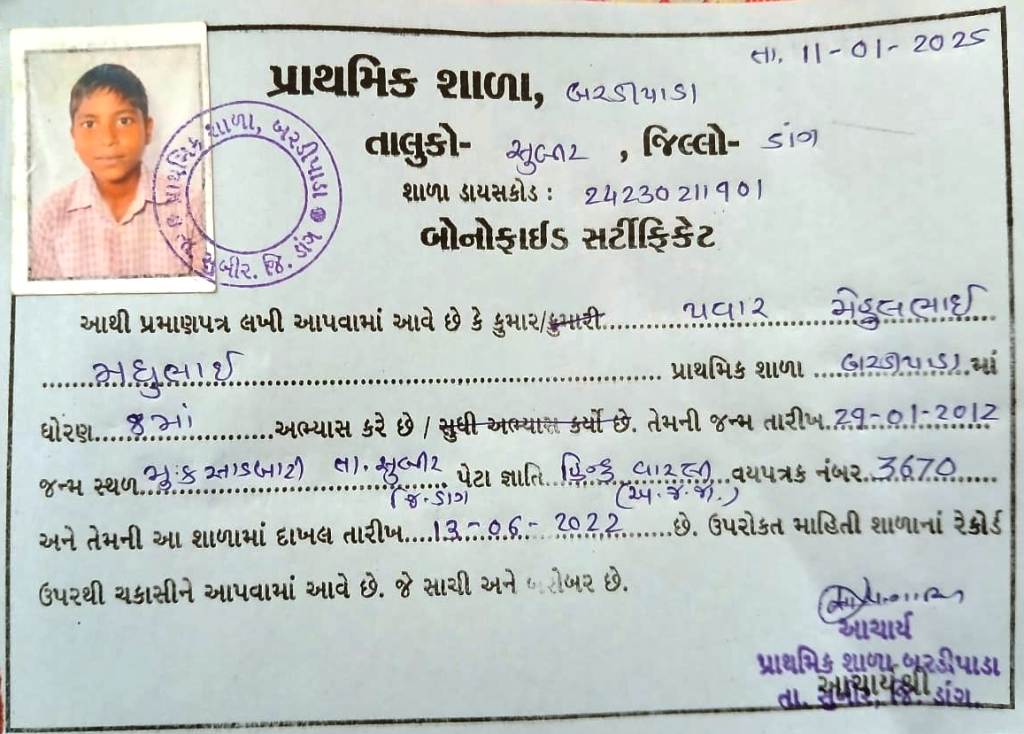 તા. 11-01-2025
પ્રાથમિક શાળા, બરડીપાડા
તાલુકો- સુબીર , જિલ્લો- ડાંગ
શાળા ડાયસકોડ : 24230211901
બોનોફાઈડ સર્ટીફિકેટ
પ્રાથમિક શાળા, બરડીપાડા તા. સુબીર. જિ. ડાંગ
આથી પ્રમાણપત્ર લખી આપવામાં આવે છે કે કુમાર/કુમારી......પવાર મેહુલભાઈ
મધુભાઈ ...... પ્રાથમિક શાળા ...બરડીપાડા.માં
ધોરણ....8માં.........અભ્યાસ કરે છે / સુધી અભ્યાસ કર્યો છે. તેમની જન્મ તારીખ.29-01-2012
જન્મ સ્થળ મુ: ક તા. સુબીર પેટા જ્ઞાતિ...હિન્દુ વારલી..વયપત્રક નંબર..3670......
જિ. ડાંગ (અ.જ.જા.)
અને તેમની આ શાળામાં દાખલ તારીખ....13-06-2022........છે. ઉપરોકત માહિતી શાળાનાં રેકોર્ડ
ઉપરથી ચકાસીને આપવામાં આવે છે. જે સાચી અને બરોબર છે.
આચાર્ય
પ્રાથમિક શાળા બરડીપાડા
આચાર્યશ્રી
તા. સુબીર, જિ. ડાંગ.